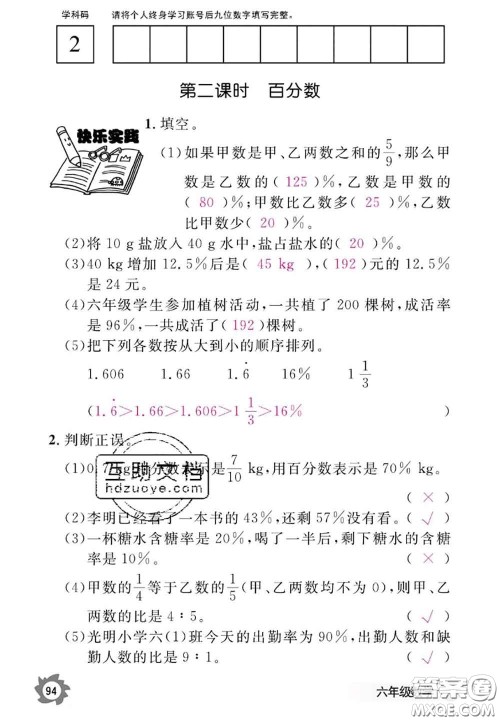 学科码 请将个人终身学习账号后九位数字填写完整。
2
第二课时 百分数
快乐实践
1. 填空。
(1)如果甲数是甲、乙两数之和的5/9,那么甲
数是乙数的( 125 )%;乙数是甲数的
( 80 )%;甲数比乙数多( 25 )%,乙数
比甲数少( 20 )%。
(2)将 10 g 盐放入 40 g 水中,盐占盐水的( 20 )%。
(3)40 kg 增加 12.5%后是( 45 kg ),( 192 )元的 12.5%
是 24 元。
(4)六年级学生参加植树活动,一共植了 200 棵树,成活率
是 96%,一共成活了( 192 )棵树。
(5)把下列各数按从大到小的顺序排列。
1.606 1.66 1.6̇ 16% 1 1/3
( 1.6̇>1.66>1.606>1 1/3>16% )
2. 判断正误。
(1)0.7 kg 用分数表示是7/10 kg,用百分数表示是 70% kg。
( × )
(2)李明已经看了一本书的 43%,还剩 57%没有看。 ( √ )
(3)一杯糖水含糖率是 20%,喝了一半后,剩下糖水的含
糖率是 10%。 ( × )
(4)甲数的1/4等于乙数的1/5(甲、乙两数均不为 0),则甲、乙
两数的比是 4∶5。 ( √ )
(5)光明小学六(1)班今天的出勤率为 90%,出勤人数和缺
勤人数的比是 9∶1。 ( √ )
互助文档
hdzuoye.com
94
六年级